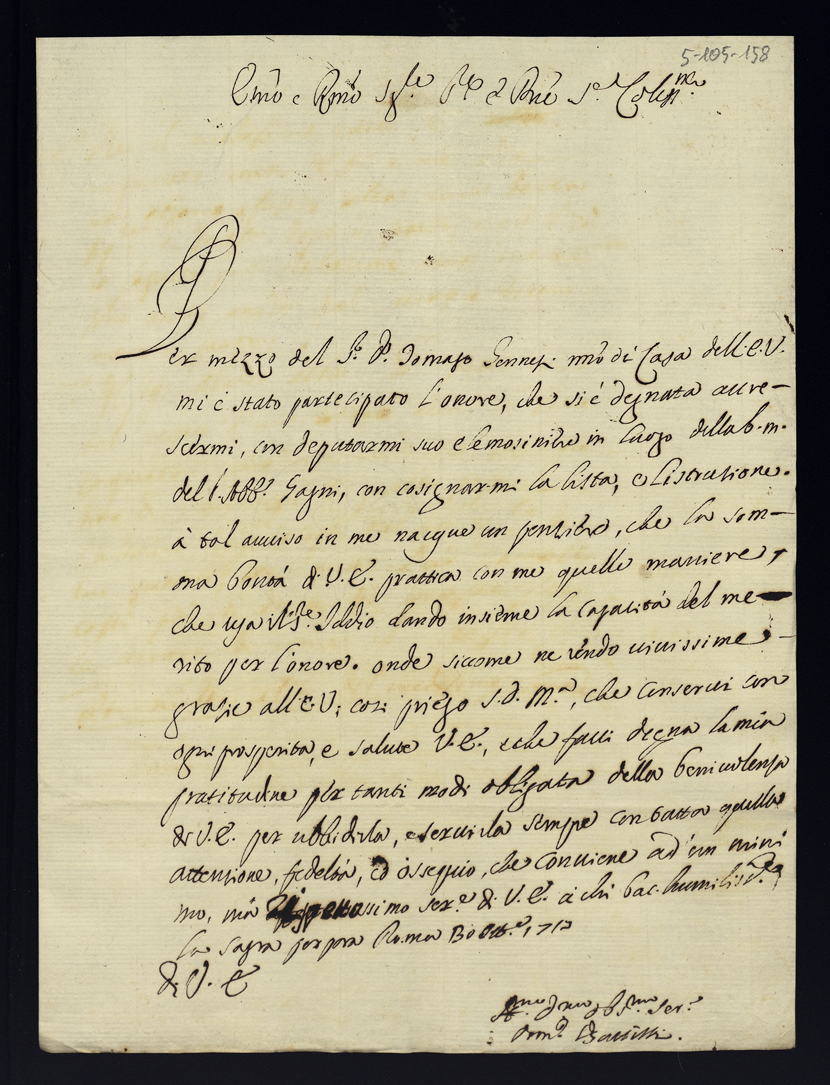 5-105-158
Emõ e Rmõ Sig.re P.re e Pñe S.e Col.mo
Per mezzo del S.r D. Tomaso Gennesi mrõ di Casa dell'E.V.
mi è stato partecipato l'onore, che si è degnata accre-
scermi, con deputarmi suo elemosiniere in luogo della b.m.
del S. Abb.e Gagni, con cosignarmi la lista, e listrutione.
à tal auuiso in me nacque un pensiero, che la som-
ma bontà di V.E. prattica con me quelle maniere,
che usa il S.re Iddio dando insieme la capacità del me-
rito per l'onore. onde siccome ne rendo viuissime
grazie all'E.V; così priego S.D.M.a, che conserui con
ogni prosperità, e salute V.E., e che facci degna la mia
gratitudine per tanti modi obligata della beniuolenza
di V.E. per ubbidirla, e seruirla sempre con tutta quella
attenzione, fedeltà, ed ossequio, che conuiene ad'un mini
mo, mà ssimo ser.e di V.E. à chi bac. humilissm.e
la sagra porpora Roma 80 Ott.e 1717
di V. E
H.mo D.mo Obl.mo Ser.e